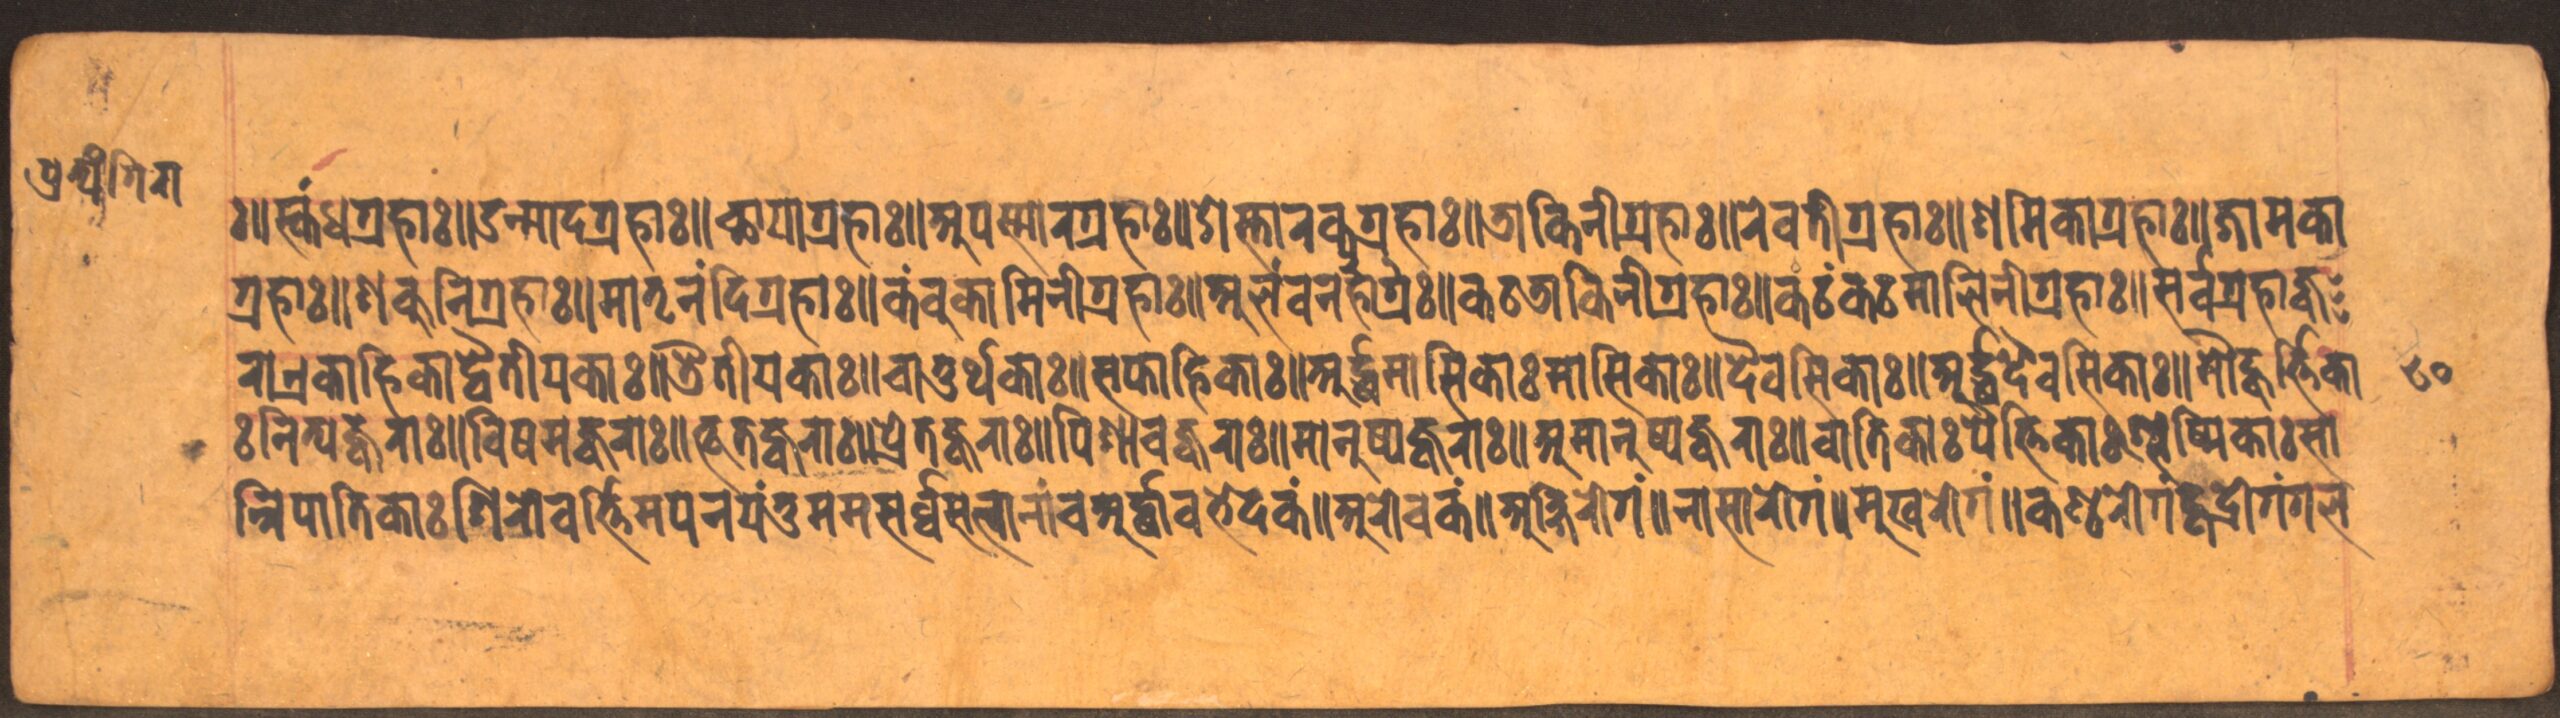 प्रत्यंगिरा
ः॥स्कंधग्रहाः॥उन्मादग्रहाः॥छायाग्रहाः॥अपस्मारग्रहाः॥ओस्तारकग्रहाः॥डाकिनीग्रहाः॥रेवतीग्रहाः॥शमिकाग्रहाः॥जामका
ग्रहाः॥शकुनिग्रहाः॥मातृनंदिग्रहाः॥कंवुकामिनीग्रहाः॥अलंवनहाग्रः॥कटडाकिनीग्रहाः॥कटंकटमालिनीग्रहाः॥सर्वग्रहाज्व
रात्रकाहिकाद्वैतीयकाः॥त्रैतीयकाः॥चातुर्थकाः॥सप्ताहिकाः॥अर्द्धमासिकाःमासिकाः॥दैवसिकाः॥अर्द्धदैवसिकाः॥मौहूर्त्तिका
८०
ःनित्यज्वराः॥विषमज्वराः॥भूतज्वराः॥प्रेतज्वराः॥पिशाचज्वराः॥मानुष्यज्वराः॥अमानुष्यज्वराः॥वातिकाःपैत्तिकाःश्लेष्मिकाःसा
न्निपातिकाःशिरोवर्त्तिमपनयंतुममसर्व्वसत्वानांचअर्द्धावभेदकं॥अरोचकं॥अक्षिरोगं॥नासारोगं॥मुखरोगं॥कण्ठरोगंहृद्रोगंगल